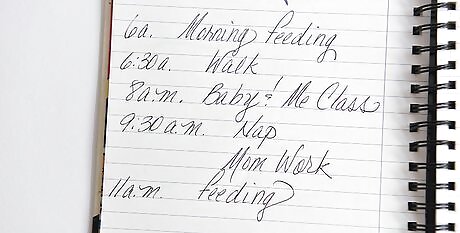 6a. Morning Feeding
6:30a. Walk
8a.m. Baby & Me Class
9:30a.m. Nap
Mom Work
11a.m. Feeding